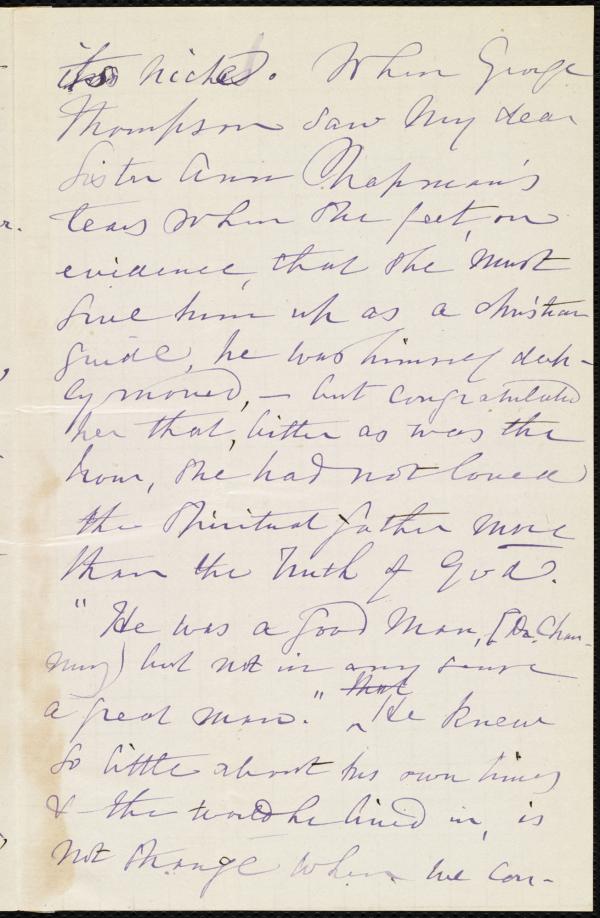 its niches. When George
Thompson saw my dear
Sister Ann Chapman's
tears when she felt, on
evidence, that she must
give him up as a christian
guide, he was himself deep-
ly moved, — but congratulated
her that, bitter as was the
hour, she had not loved
the spiritual father more
than the Truth of God.
"He was a good man, (Dr. Chan-
ning) but not in any sense
a great man." That He knew
so little about his own times
& the world he lived in, is
not strange when we con-